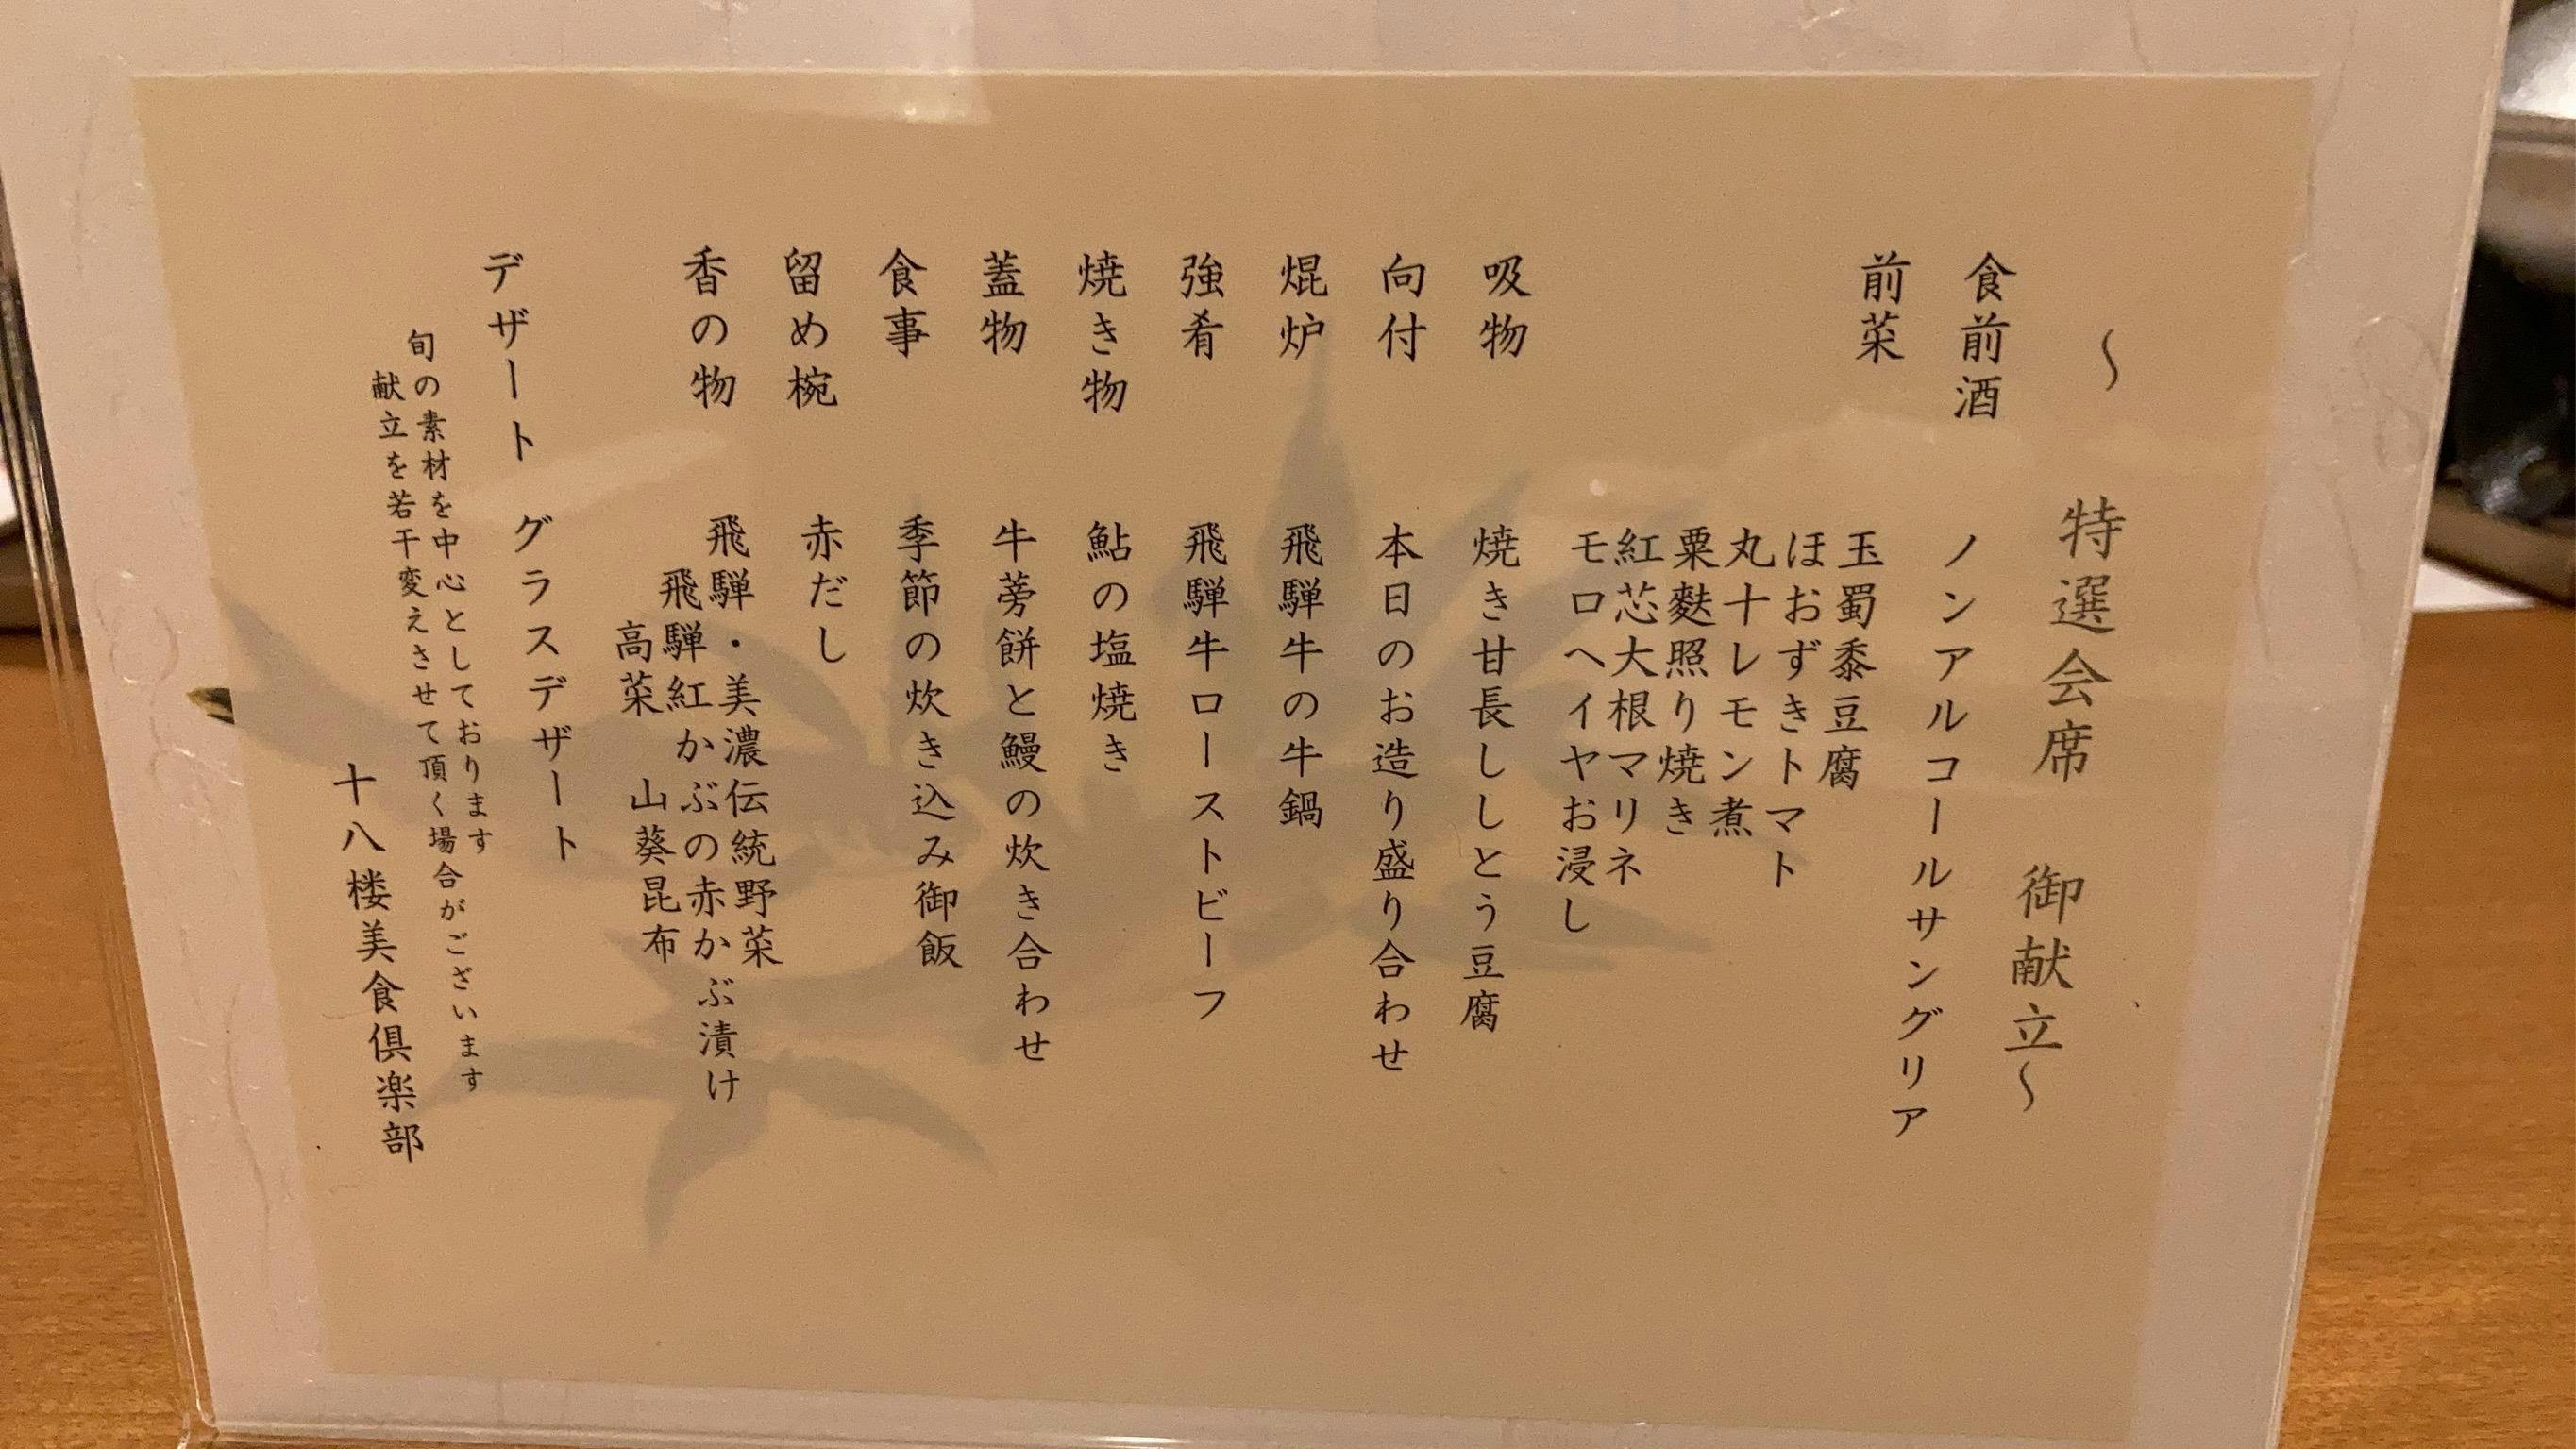 ～ 特選会席 御献立～
食前酒 ノンアルコールサングリア
前菜 玉蜀黍豆腐
ほおずきトマト
丸十レモン煮
粟麩照り焼き
紅芯大根マリネ
モロヘイヤお浸し
吸物 焼き甘長ししとう豆腐
向付 本日のお造り盛り合わせ
焜炉 飛騨牛の牛鍋
強肴 飛騨牛ローストビーフ
焼き物 鮎の塩焼き
蓋物 牛蒡餅と鰻の炊き合わせ
食事 季節の炊き込み御飯
留め椀 赤だし
香の物 飛騨・美濃伝統野菜
飛騨紅かぶの赤かぶ漬け
高菜 山葵昆布
デザート グラスデザート
旬の素材を中心としております
献立を若干変えさせて頂く場合がございます
十八楼美食倶楽部